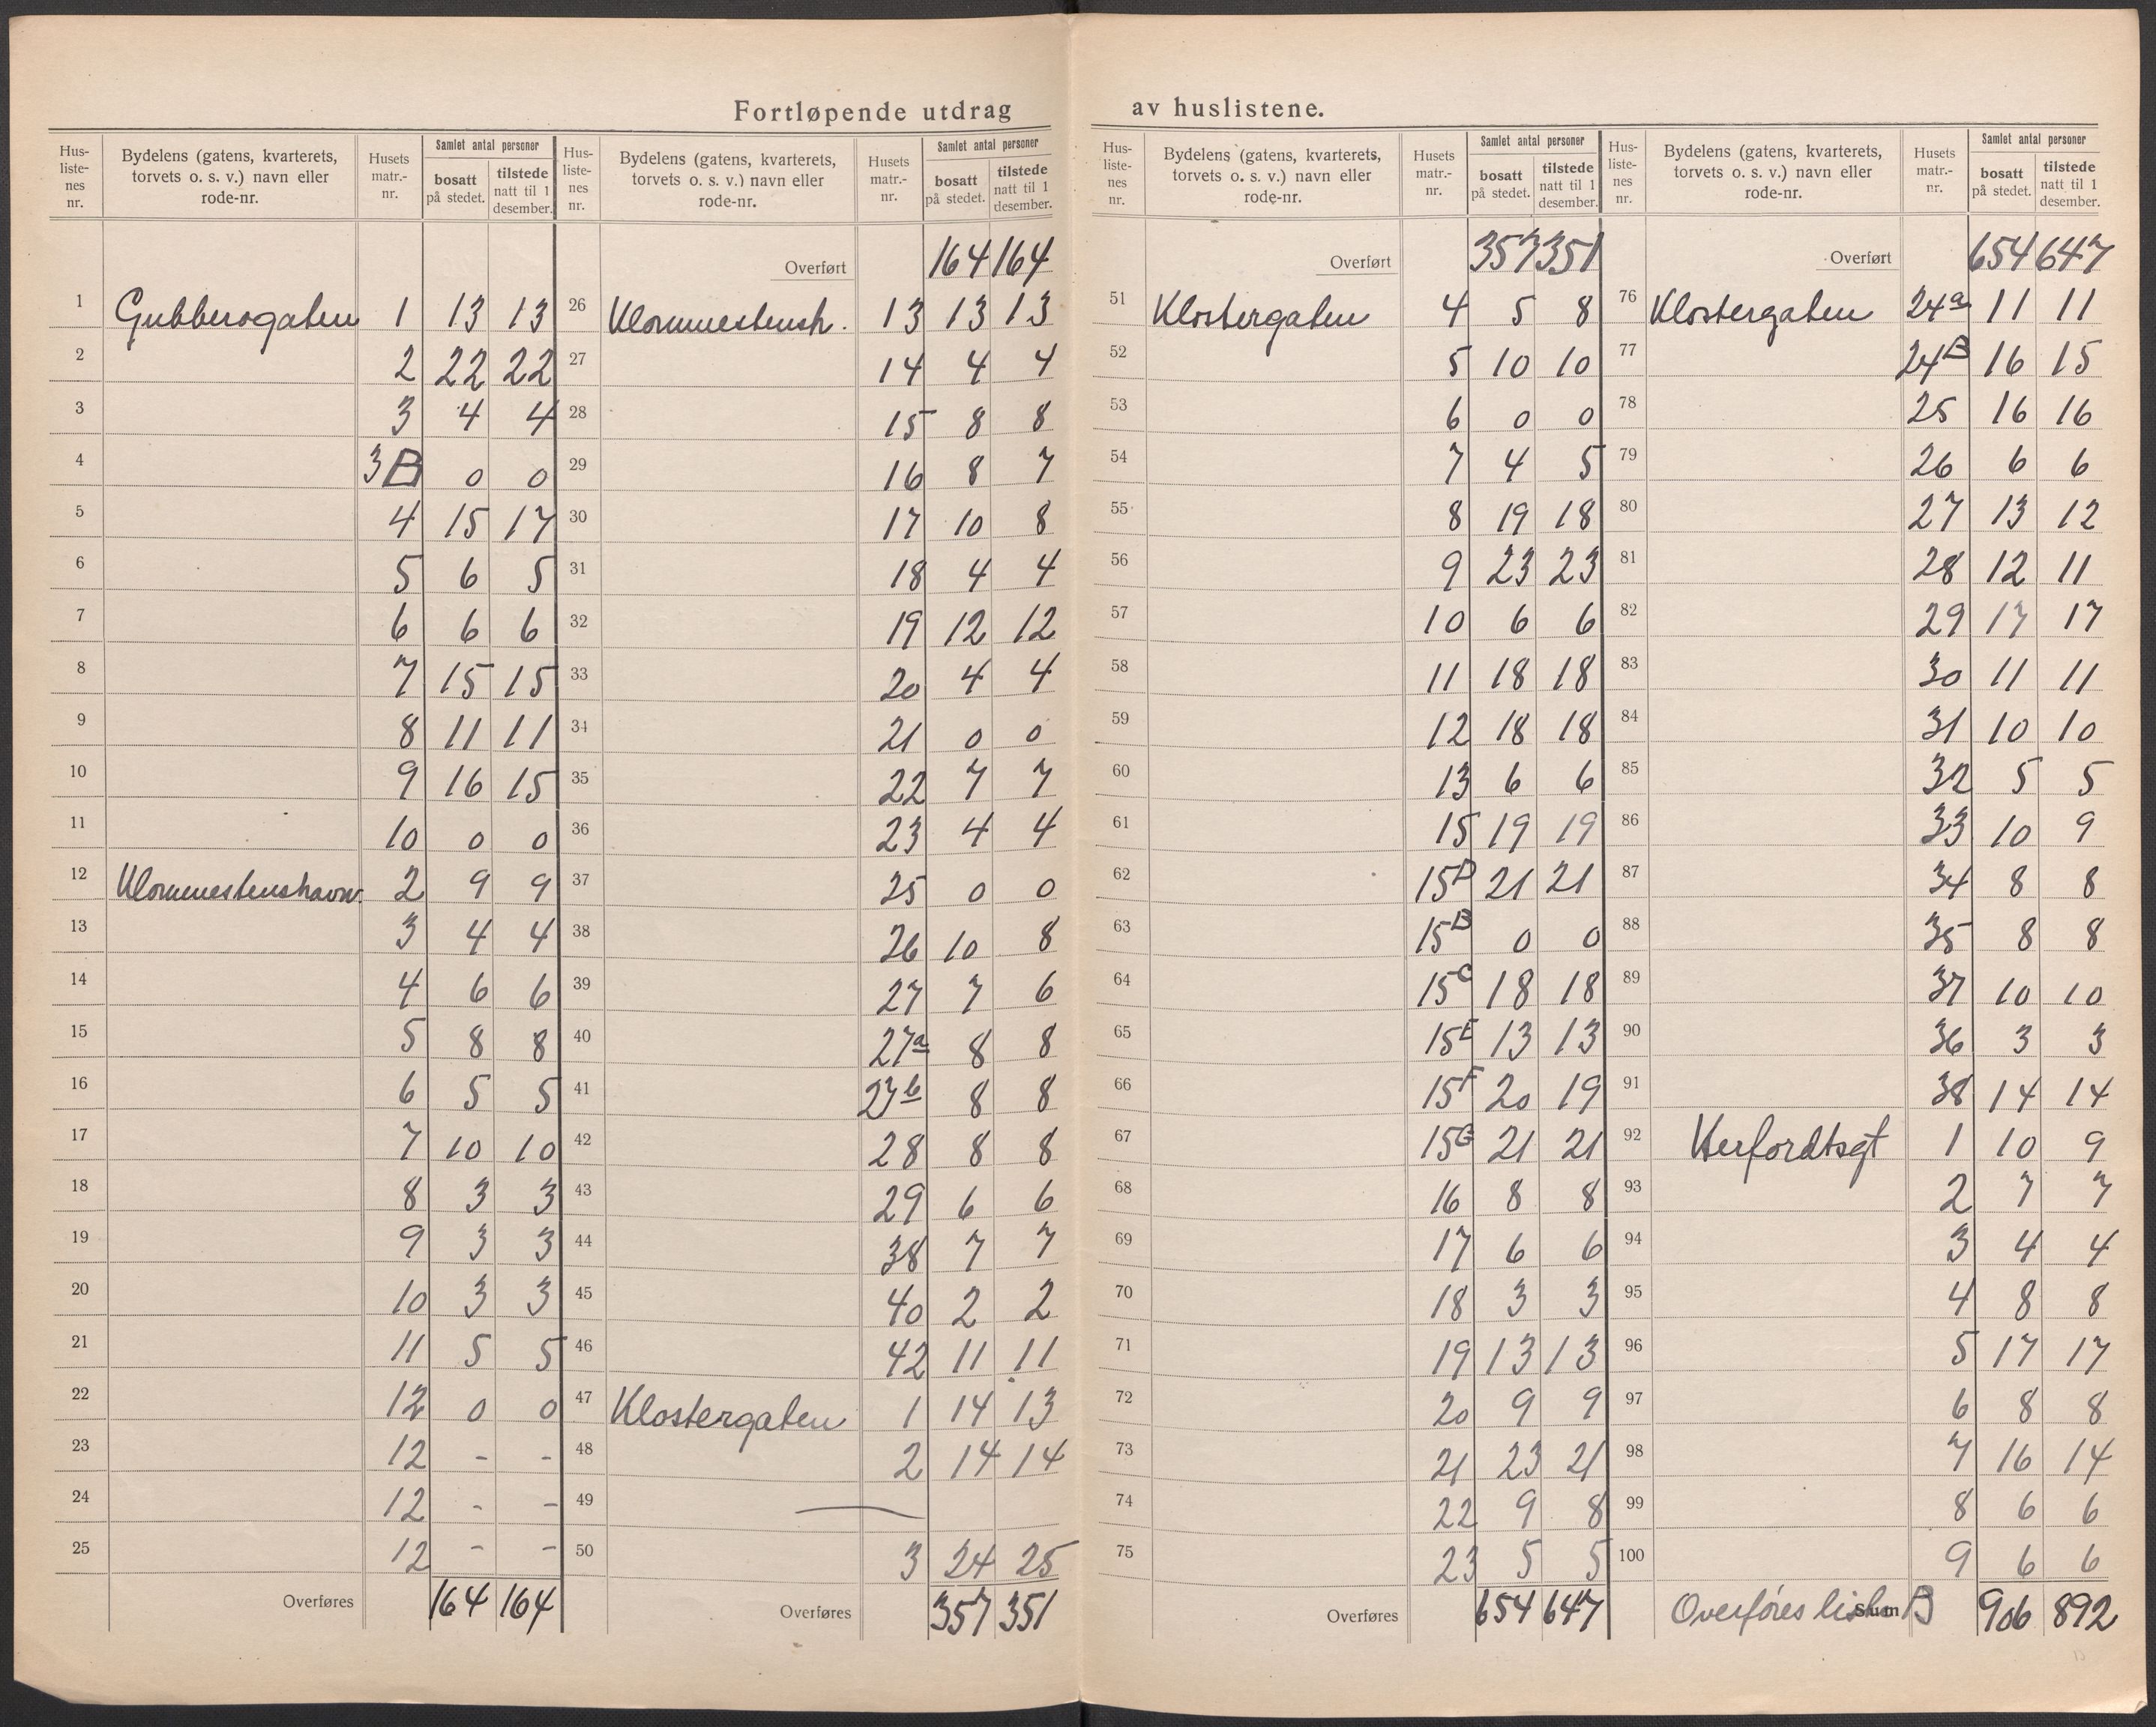 Fortløpende utdrag av huslistene.
Hus-liste-nes nr. | Bydelens (gatens, kvarterets, torvets o. s. v.) navn eller rode-nr. | Husets matr.-nr. | Samlet antal personer bosatt på stedet. | tilstede natt til 1 desember.
1 Gubberogaten 1 13 13
2 2 22 22
3 3 4 4
4 3B 0 0
5 4 15 17
6 5 6 5
7 6 6 6
8 7 15 15
9 8 11 11
10 9 16 15
11 10 0 0
12 Klommestenshavn. 2 9 9
13 3 4 4
14 4 6 6
15 5 8 8
16 6 5 5
17 7 10 10
18 8 3 3
19 9 3 3
20 10 3 3
21 11 5 5
22 12 0 0
23 12 - -
24 12 - -
25 12 - -
Overføres 164 164
Hus-liste-nes nr. | Bydelens (gatens, kvarterets, torvets o. s. v.) navn eller rode-nr. | Husets matr.-nr. | Samlet antal personer bosatt på stedet. | tilstede natt til 1 desember.
Overført 164 164
26 Klommestensh. 13 13 13
27 14 4 4
28 15 8 8
29 16 8 7
30 17 10 8
31 18 4 4
32 19 12 12
33 20 4 4
34 21 0 0
35 22 7 7
36 23 4 4
37 25 0 0
38 26 10 8
39 27 7 6
40 27a 8 8
41 27b 8 8
42 28 8 8
43 29 6 6
44 38 7 7
45 40 2 2
46 42 11 11
47 Klostergaten 1 14 13
48 2 14 14
49 —
50 3 24 25
Overføres 357 351
Hus-liste-nes nr. | Bydelens (gatens, kvarterets, torvets o. s. v.) navn eller rode-nr. | Husets matr.-nr. | Samlet antal personer bosatt på stedet. | tilstede natt til 1 desember.
Overført 357 351
51 Klostergaten 4 5 8
52 5 10 10
53 6 0 0
54 7 4 5
55 8 19 18
56 9 23 23
57 10 6 6
58 11 18 18
59 12 18 18
60 13 6 6
61 15 19 19
62 15D 21 21
63 15B 0 0
64 15C 18 18
65 15E 13 13
66 15F 20 19
67 15G 21 21
68 16 8 8
69 17 6 6
70 18 3 3
71 19 13 13
72 20 9 9
73 21 23 21
74 22 9 8
75 23 5 5
Overføres 654 647
Hus-liste-nes nr. | Bydelens (gatens, kvarterets, torvets o. s. v.) navn eller rode-nr. | Husets matr.-nr. | Samlet antal personer bosatt på stedet. | tilstede natt til 1 desember.
Overført 654 647
76 Klostergaten 24a 11 11
77 24B 16 15
78 25 16 16
79 26 6 6
80 27 13 12
81 28 12 11
82 29 17 17
83 30 11 11
84 31 10 10
85 32 5 5
86 33 10 9
87 34 8 8
88 35 8 8
89 37 10 10
90 36 3 3
91 38 14 14
92 Herfordtsgt 1 10 9
93 2 7 7
94 3 4 4
95 4 8 8
96 5 17 17
97 6 8 8
98 7 16 14
99 8 6 6
100 9 6 6
Overføres liste B Sum 906 892